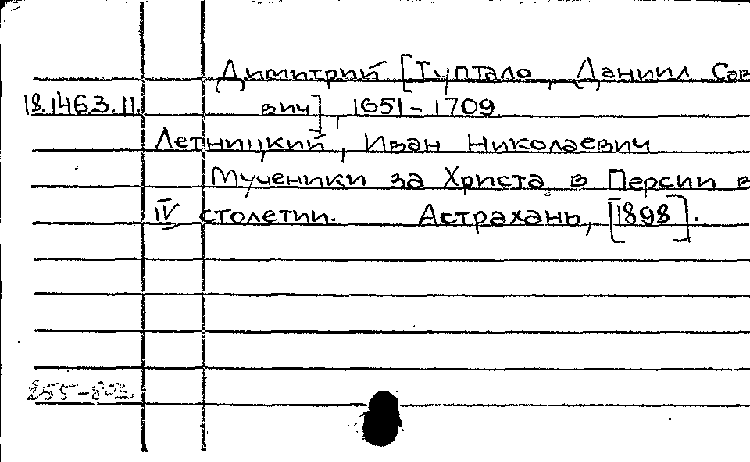 Димитрий [Туптало, Даниил Сав
18.146.3.11. вич], 1651-1709
Летницкий, Иван Николаевич
Мученики за Христа в Персии в
IV столетии. Астрахань, [1898].